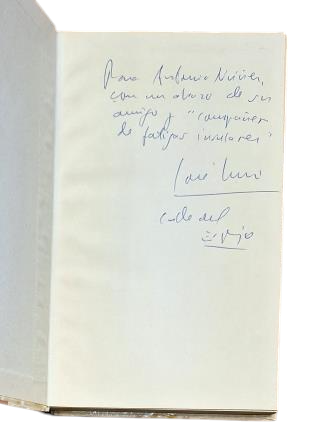 Para Antonio Núñez,
con un abrazo de su
amigo y "compañero
de fatigas insulares"
José Luis
Calle del
Espejo